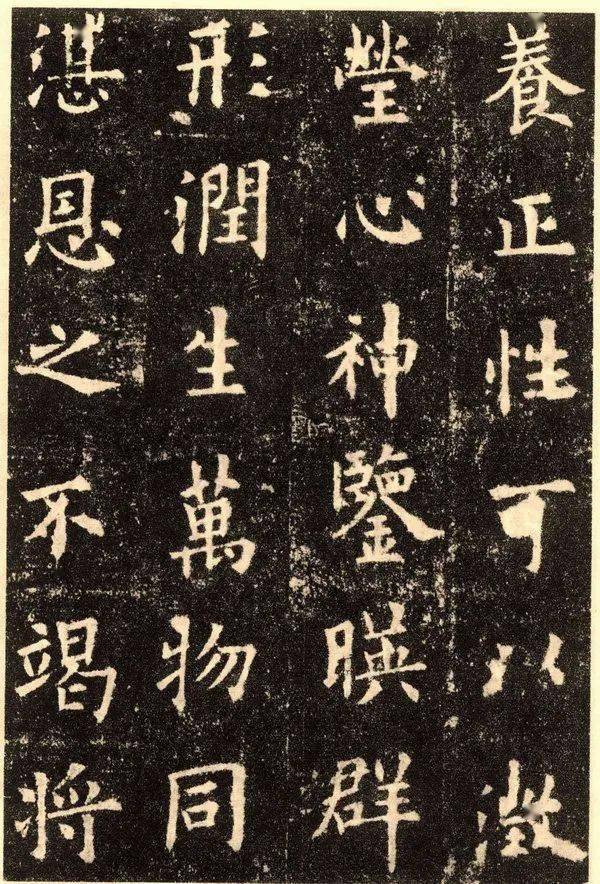 養正性可以澂
瑩心神鑒暎群
形潤生萬物同
湛恩之不竭將